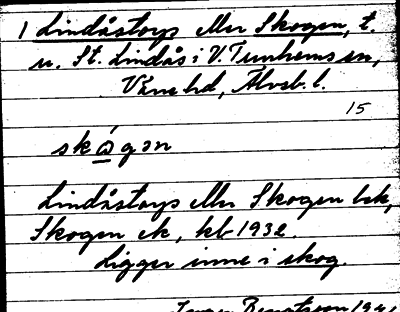 1 Lindåstorp eller Skogen, t.
u. St. Lindås i V. Tunhems sn,
Väne hd, Älvsb. l.
15
skɷ́gən
Lindåstorp eller Skogen bek,
Skogen ek, kb 1932.
Ligger inne i skog.
Ivar Bengtsson